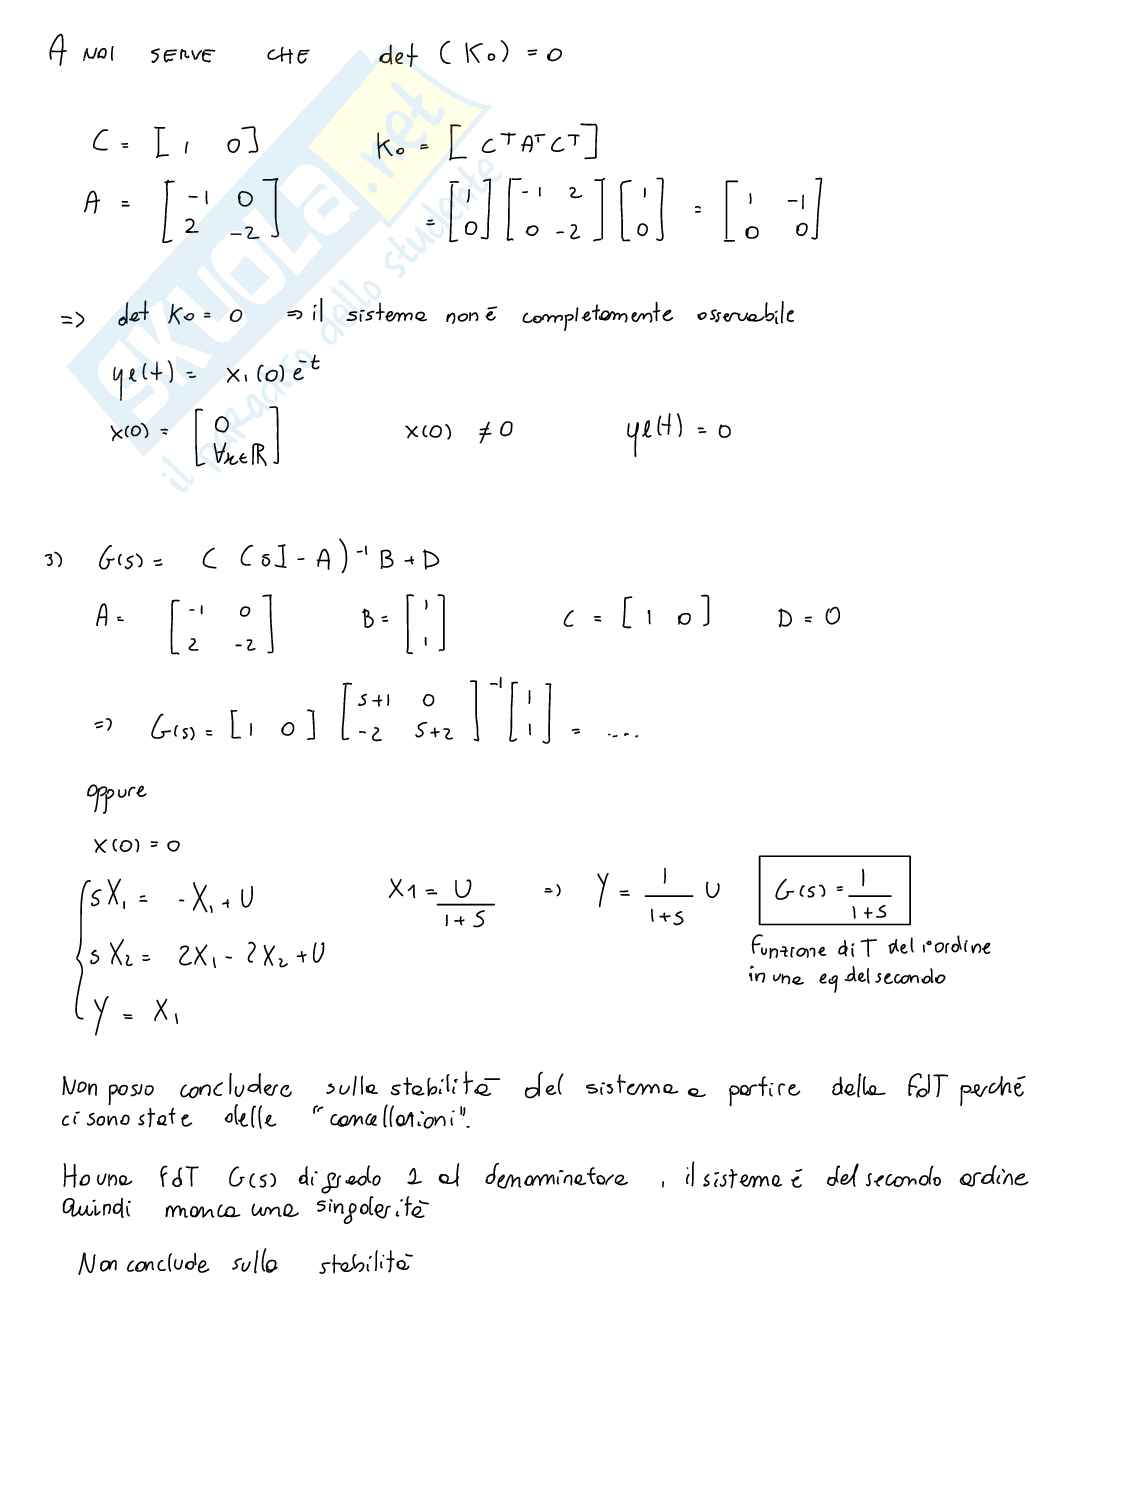 A NOI SERVE CHE det (Ko) = 0
C = [1 0] Ko = [C^T A^T C^T]
A = [-1 0; 2 -2] = [1; 0] [-1 2; 0 -2] [1; 0] = [1 -1; 0 0]
=> det Ko = 0 => il sistema non è completamente osservabile
ye(t) = x1(0) e^-t
x(0) = [0; ∀x∈ℝ] x(0) ≠ 0 ye(t) = 0
3) G(s) = C (sI - A)^-1 B + D
A = [-1 0; 2 -2] B = [1; 1] C = [1 0] D = 0
=> G(s) = [1 0] [s+1 0; -2 s+2]^-1 [1; 1] = ....
oppure
x(0) = 0
sX1 = -X1 + U X1 = U/(1+s) => Y = 1/(1+s) U G(s) = 1/(1+s)
Funzione di T del 1° ordine
in una eq del secondo
sX2 = 2X1 - 2X2 + U
Y = X1
Non posso concludere sulla stabilità del sistema a partire dalla FdT perché
ci sono state delle "cancellazioni".
Ho una FdT G(s) di grado 1 al denominatore, il sistema è del secondo ordine
Quindi manca una singolarità
Non conclude sulla stabilità
SKUOLA.net
il paradiso dello studente